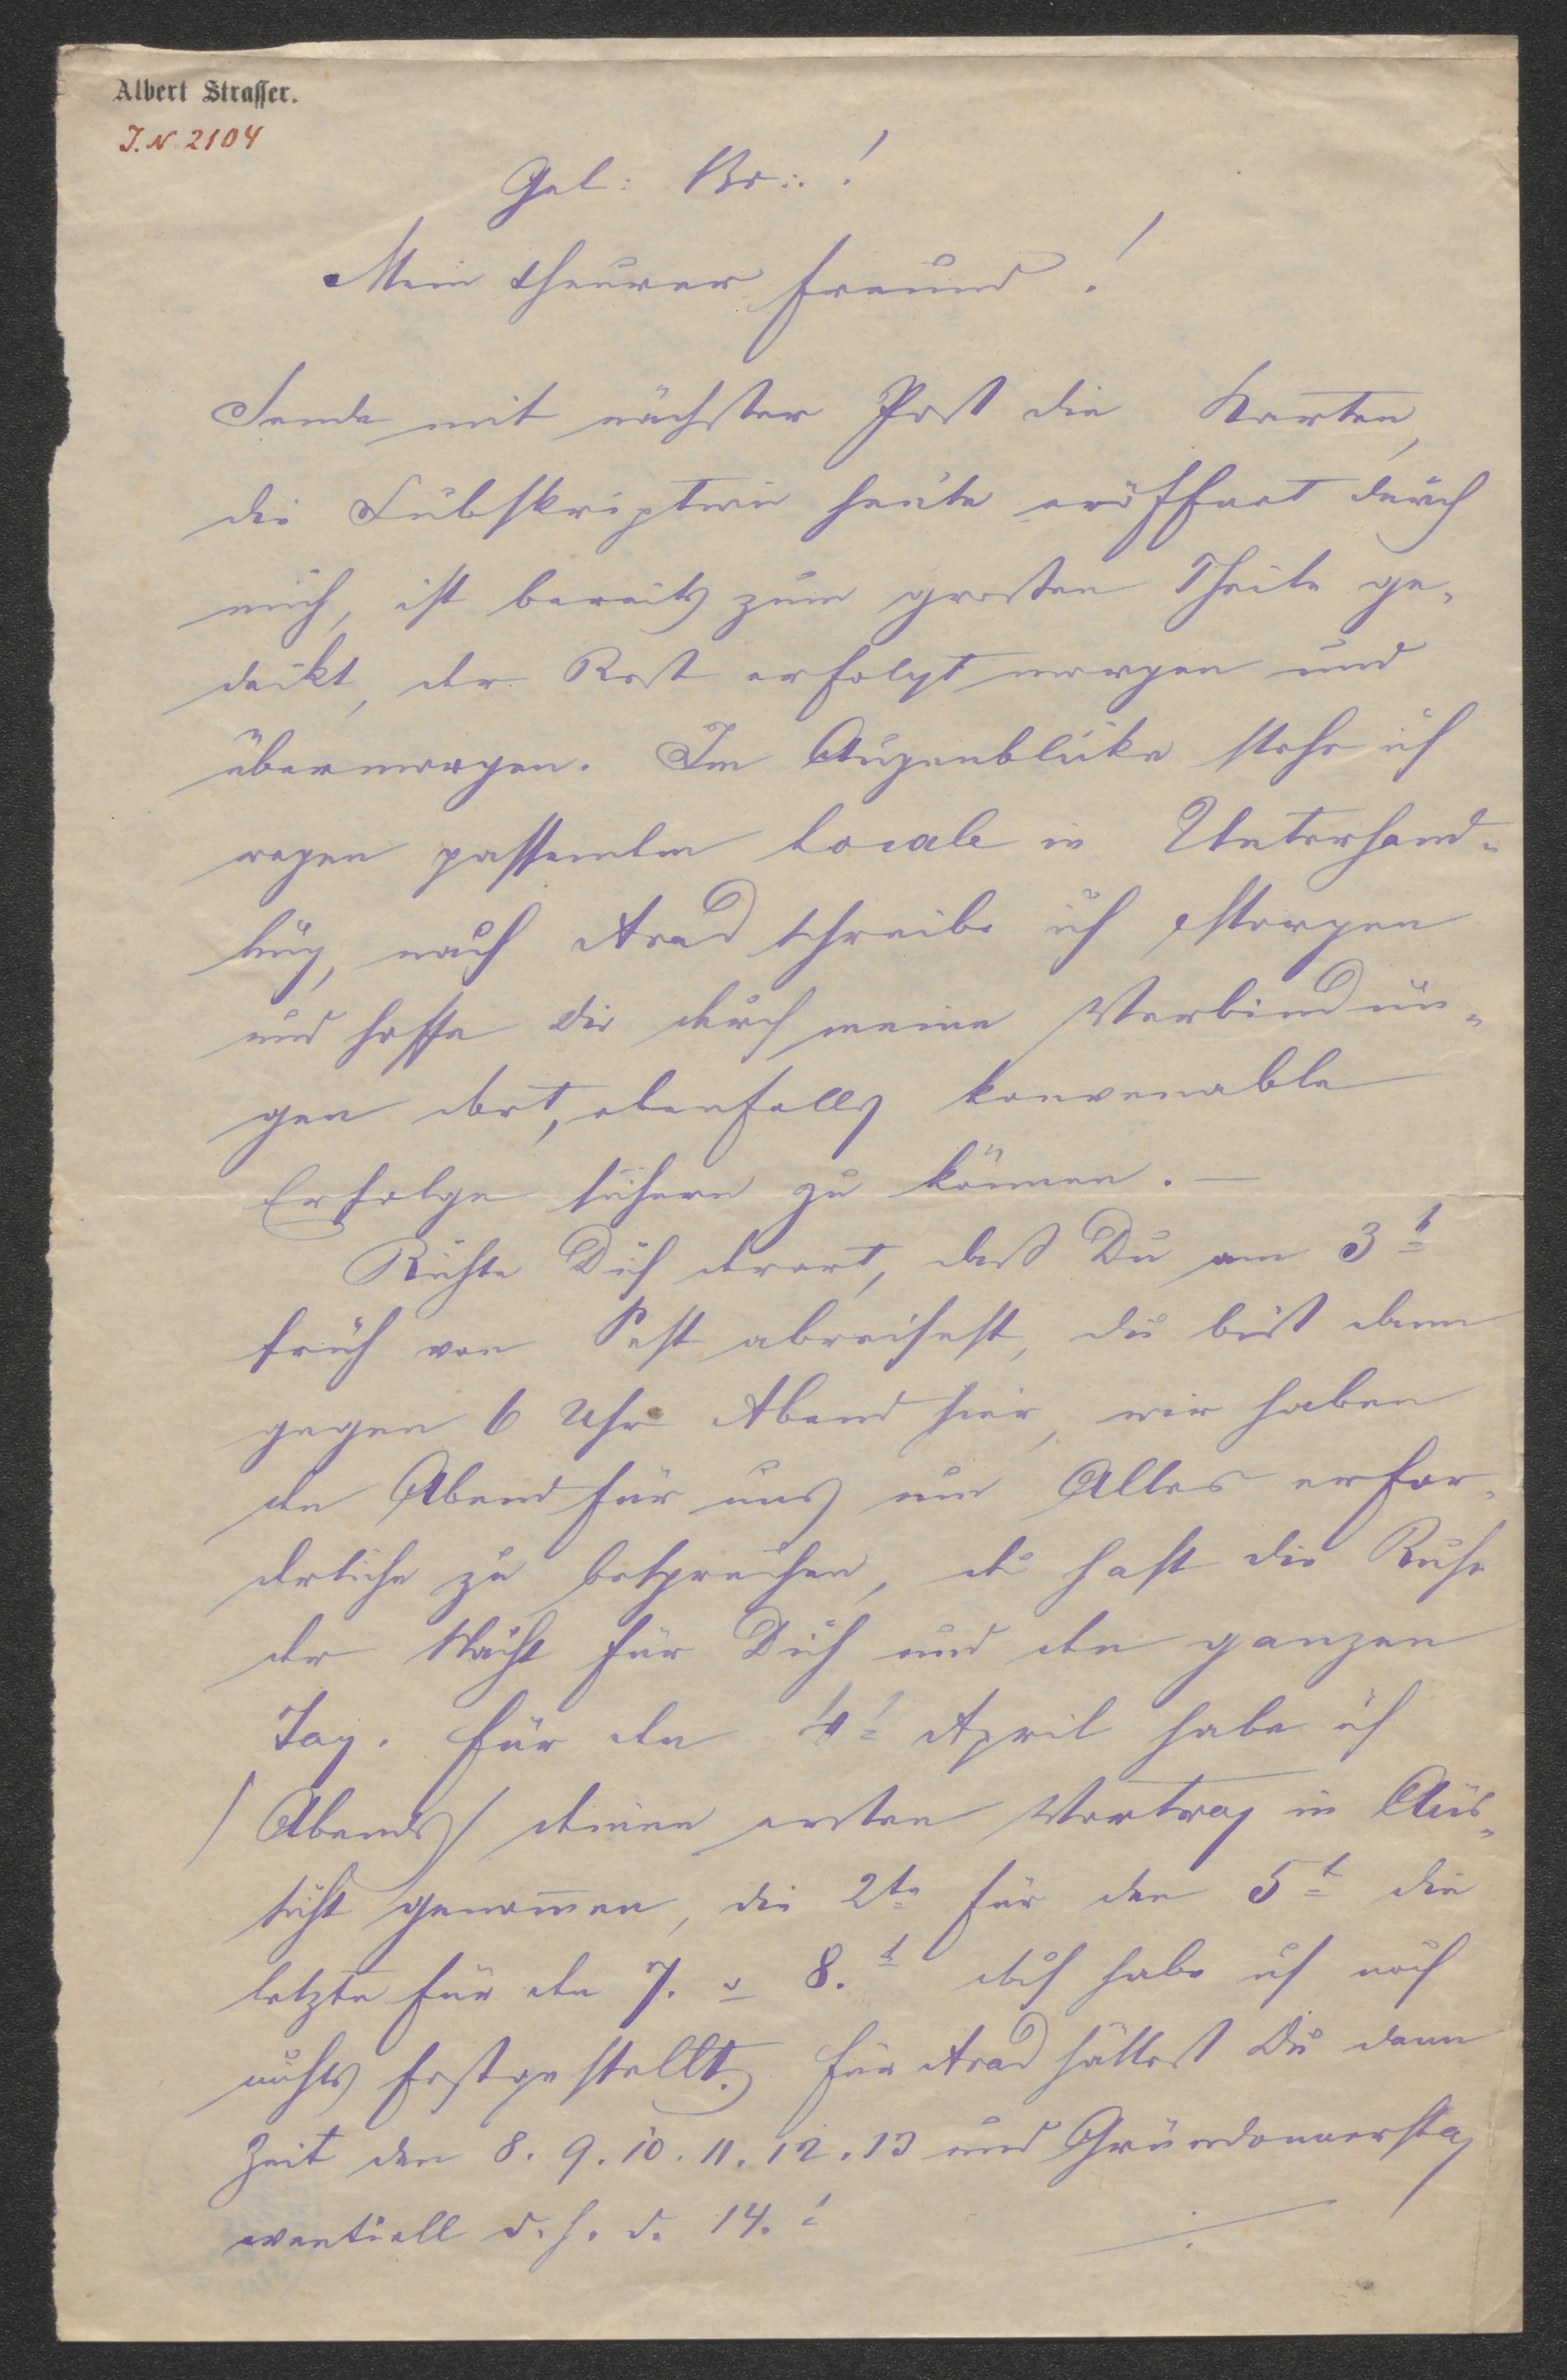 Albert Strasser.
J. N. 2104
Gel: Br∴!
Mein theurer Freund!
Sende mit nächster Post die Karten,
die Subskription heute eröffnet durch
mich, ist bereits zum grosten Theile ge-
deckt, der Rest erfolgt morgen und
übermorgen. Im Augenblicke stehe ich
wegen passenden Locale in Unterhand-
lung, nach Arad schreibe ich Morgen
und hoffe die durch meine Verbindun-
gen dort, ebenfalls konvenable
Erfolge sichern zu können. —
Richte Dich derart, daß Du am 3t
früh von Pest abreisest, du bist dann
gegen 6 Uhr Abend hier, wir haben
den Abend für uns um Alles erfor-
derliche zu besprechen, du hast die Ruhe
der Nacht für Dich und den ganzen
Tag. Für den 4t April habe ich
/Abends/ deinen ersten Vortrag in Aus-
sicht genommen, die 2te für den 5t die
letzte für den 7. o 8.t doch habe ich noch
nichts festgestellt. Für Arad hättest Du dann
Zeit den 8. 9. 10. 11. 12. 13 und Gründonnerstag
eventuell d. h. d. 14.t ./.